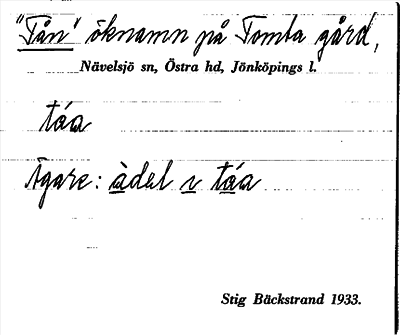 "Tån" öknamn på Tomta gård,
Nävelsjö sn, Östra hd, Jönköpings l.
tá̱a
Ägare: à̱del i̱ tá̱a
Stig Bäckstrand 1933.